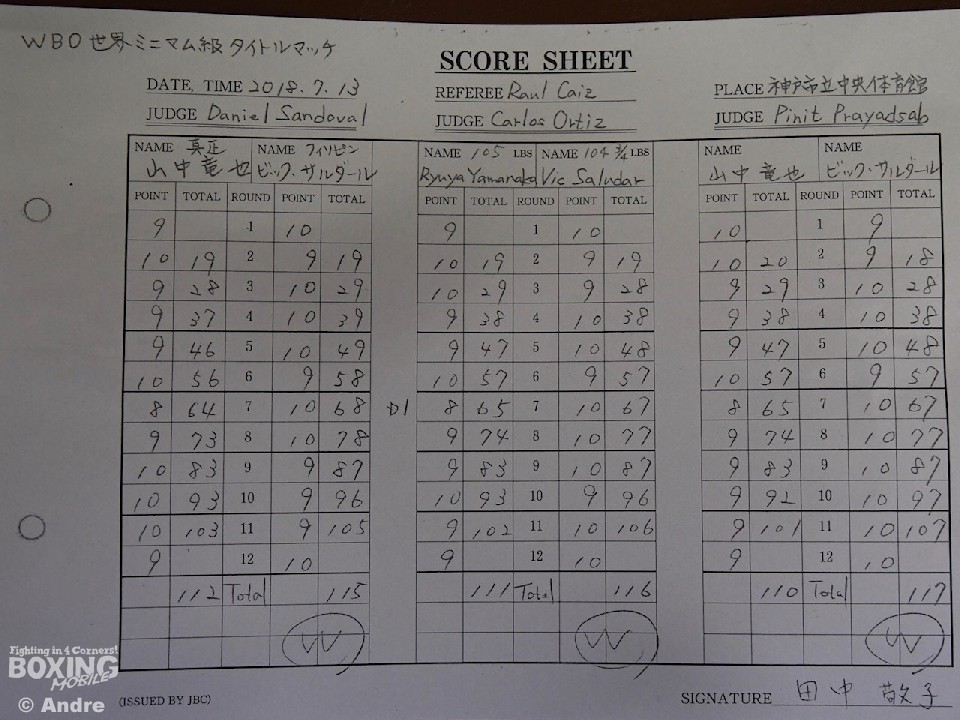 WBO 世界ミニマム級 タイトルマッチ
SCORE SHEET
DATE, TIME 2018.7.13
REFEREE Raul Caiz
PLACE 神戸市立中央体育館
JUDGE Daniel Sandoval
JUDGE Carlos Ortiz
JUDGE Pinit Prayadsab
NAME 真正 NAME フィリピン NAME 105 LBS NAME 104 3/4 LBS NAME NAME
山中竜也 ビック・サルダール Ryuya Yamanaka Vic Saludar 山中竜也 ビック・サルダール
POINT TOTAL ROUND POINT TOTAL POINT TOTAL ROUND POINT TOTAL POINT TOTAL ROUND POINT TOTAL
9 1 10 9 1 10 10 1 9
10 19 2 9 19 10 19 2 9 19 10 20 2 9 18
9 28 3 10 29 10 29 3 9 28 9 29 3 10 28
9 37 4 10 39 9 38 4 10 38 9 38 4 10 38
9 46 5 10 49 9 47 5 10 48 9 47 5 10 48
10 56 6 9 58 10 57 6 9 57 10 57 6 9 57
8 64 7 10 68 D1 8 65 7 10 67 8 65 7 10 67
9 73 8 10 78 9 74 8 10 77 9 74 8 10 77
10 83 9 9 87 9 83 9 10 87 9 83 9 10 87
10 93 10 9 96 10 93 10 9 96 9 92 10 10 97
10 103 11 9 105 9 102 11 10 106 9 101 11 10 107
9 12 10 9 12 10 9 12 10
112 Total 115 111 Total 116 110 Total 117
W W W
Fighting in 4 Corners!
BOXING
MOBILE
© Andre
(ISSUED BY JBC)
SIGNATURE 田中 敬子